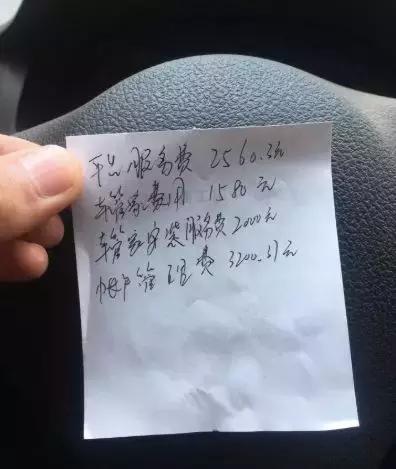 平台服务费 2560.3元
车管家费用 1580元
车管家安装服务费2000元
帐户管理费 3200.37元